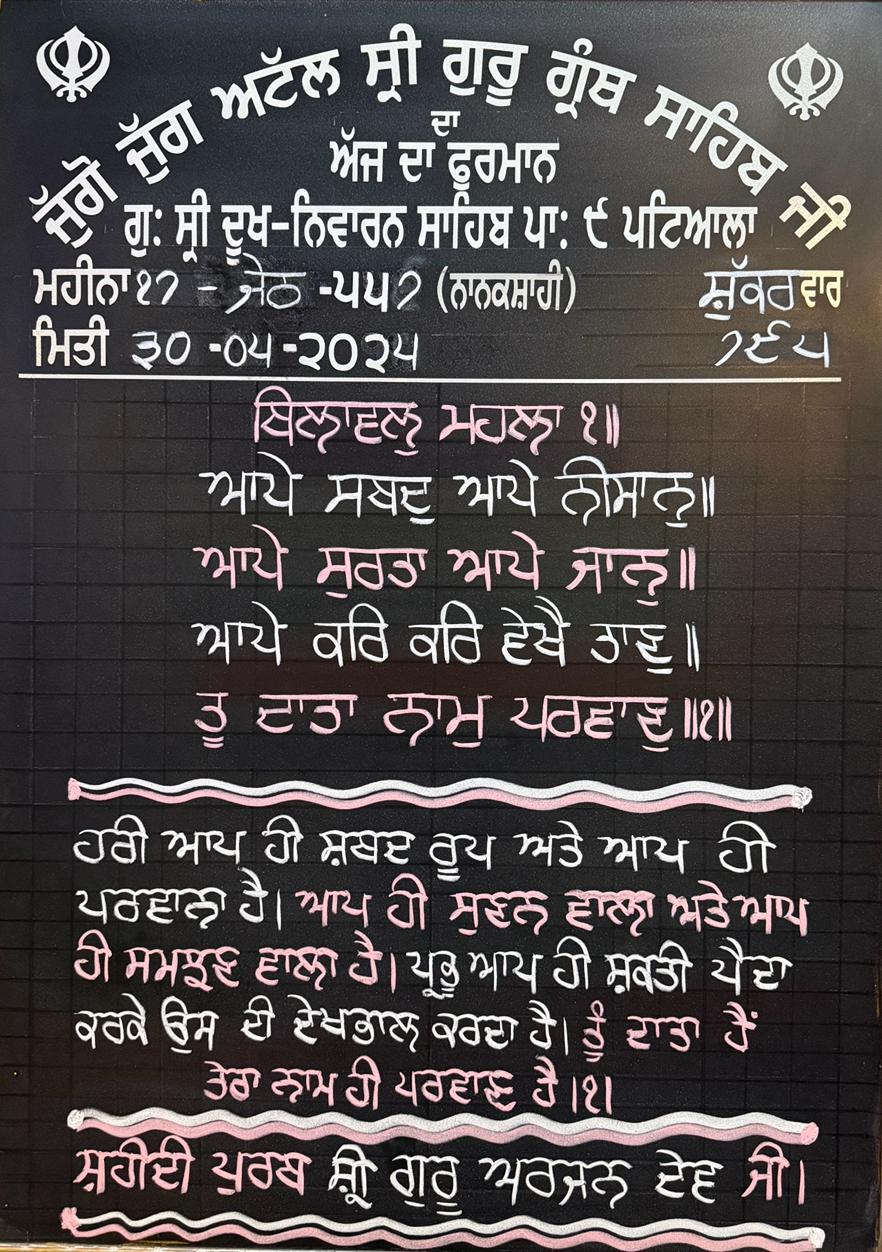 ਜੁੱਗੋ ਜੁੱਗ ਅਟੱਲ ਸ੍ਰੀ ਗੁਰੂ ਗ੍ਰੰਥ ਸਾਹਿਬ ਜੀ
ਦਾ
ਅੱਜ ਦਾ ਫੁਰਮਾਨ
ਗੁ: ਸ੍ਰੀ ਦੂਖ-ਨਿਵਾਰਨ ਸਾਹਿਬ ਪਾ: ੯ ਪਟਿਆਲਾ
ਮਹੀਨਾ ੧੭ - ਜੇਠ -੫੫੭ (ਨਾਨਕਸ਼ਾਹੀ) ਸ਼ੁੱਕਰਵਾਰ
ਮਿਤੀ ੩੦ -੦੫ -੨੦੨੫ ੭੯੫
ਬਿਲਾਵਲੁ ਮਹਲਾ ੧॥
ਆਪੇ ਸਬਦੁ ਆਪੇ ਨੀਸਾਨੁ॥
ਆਪੇ ਸੁਰਤਾ ਆਪੇ ਜਾਨੁ॥
ਆਪੇ ਕਰਿ ਕਰਿ ਵੇਖੈ ਤਾਣੁ॥
ਤੂ ਦਾਤਾ ਨਾਮੁ ਪਰਵਾਣੁ॥੧॥
ਹਰੀ ਆਪ ਹੀ ਸ਼ਬਦ ਰੂਪ ਅਤੇ ਆਪ ਹੀ
ਪਰਵਾਨਾ ਹੈ। ਆਪ ਹੀ ਸੁਣਨ ਵਾਲਾ ਅਤੇ ਆਪ
ਹੀ ਸਮਝਣ ਵਾਲਾ ਹੈ। ਪ੍ਰਭੂ ਆਪ ਹੀ ਸ਼ਕਤੀ ਪੈਦਾ
ਕਰਕੇ ਉਸ ਦੀ ਦੇਖਭਾਲ ਕਰਦਾ ਹੈ। ਤੂੰ ਦਾਤਾ ਹੈਂ
ਤੇਰਾ ਨਾਮ ਹੀ ਪਰਵਾਣ ਹੈ।੧।
ਸ਼ਹੀਦੀ ਪੁਰਬ ਸ਼੍ਰੀ ਗੁਰੂ ਅਰਜਨ ਦੇਵ ਜੀ।